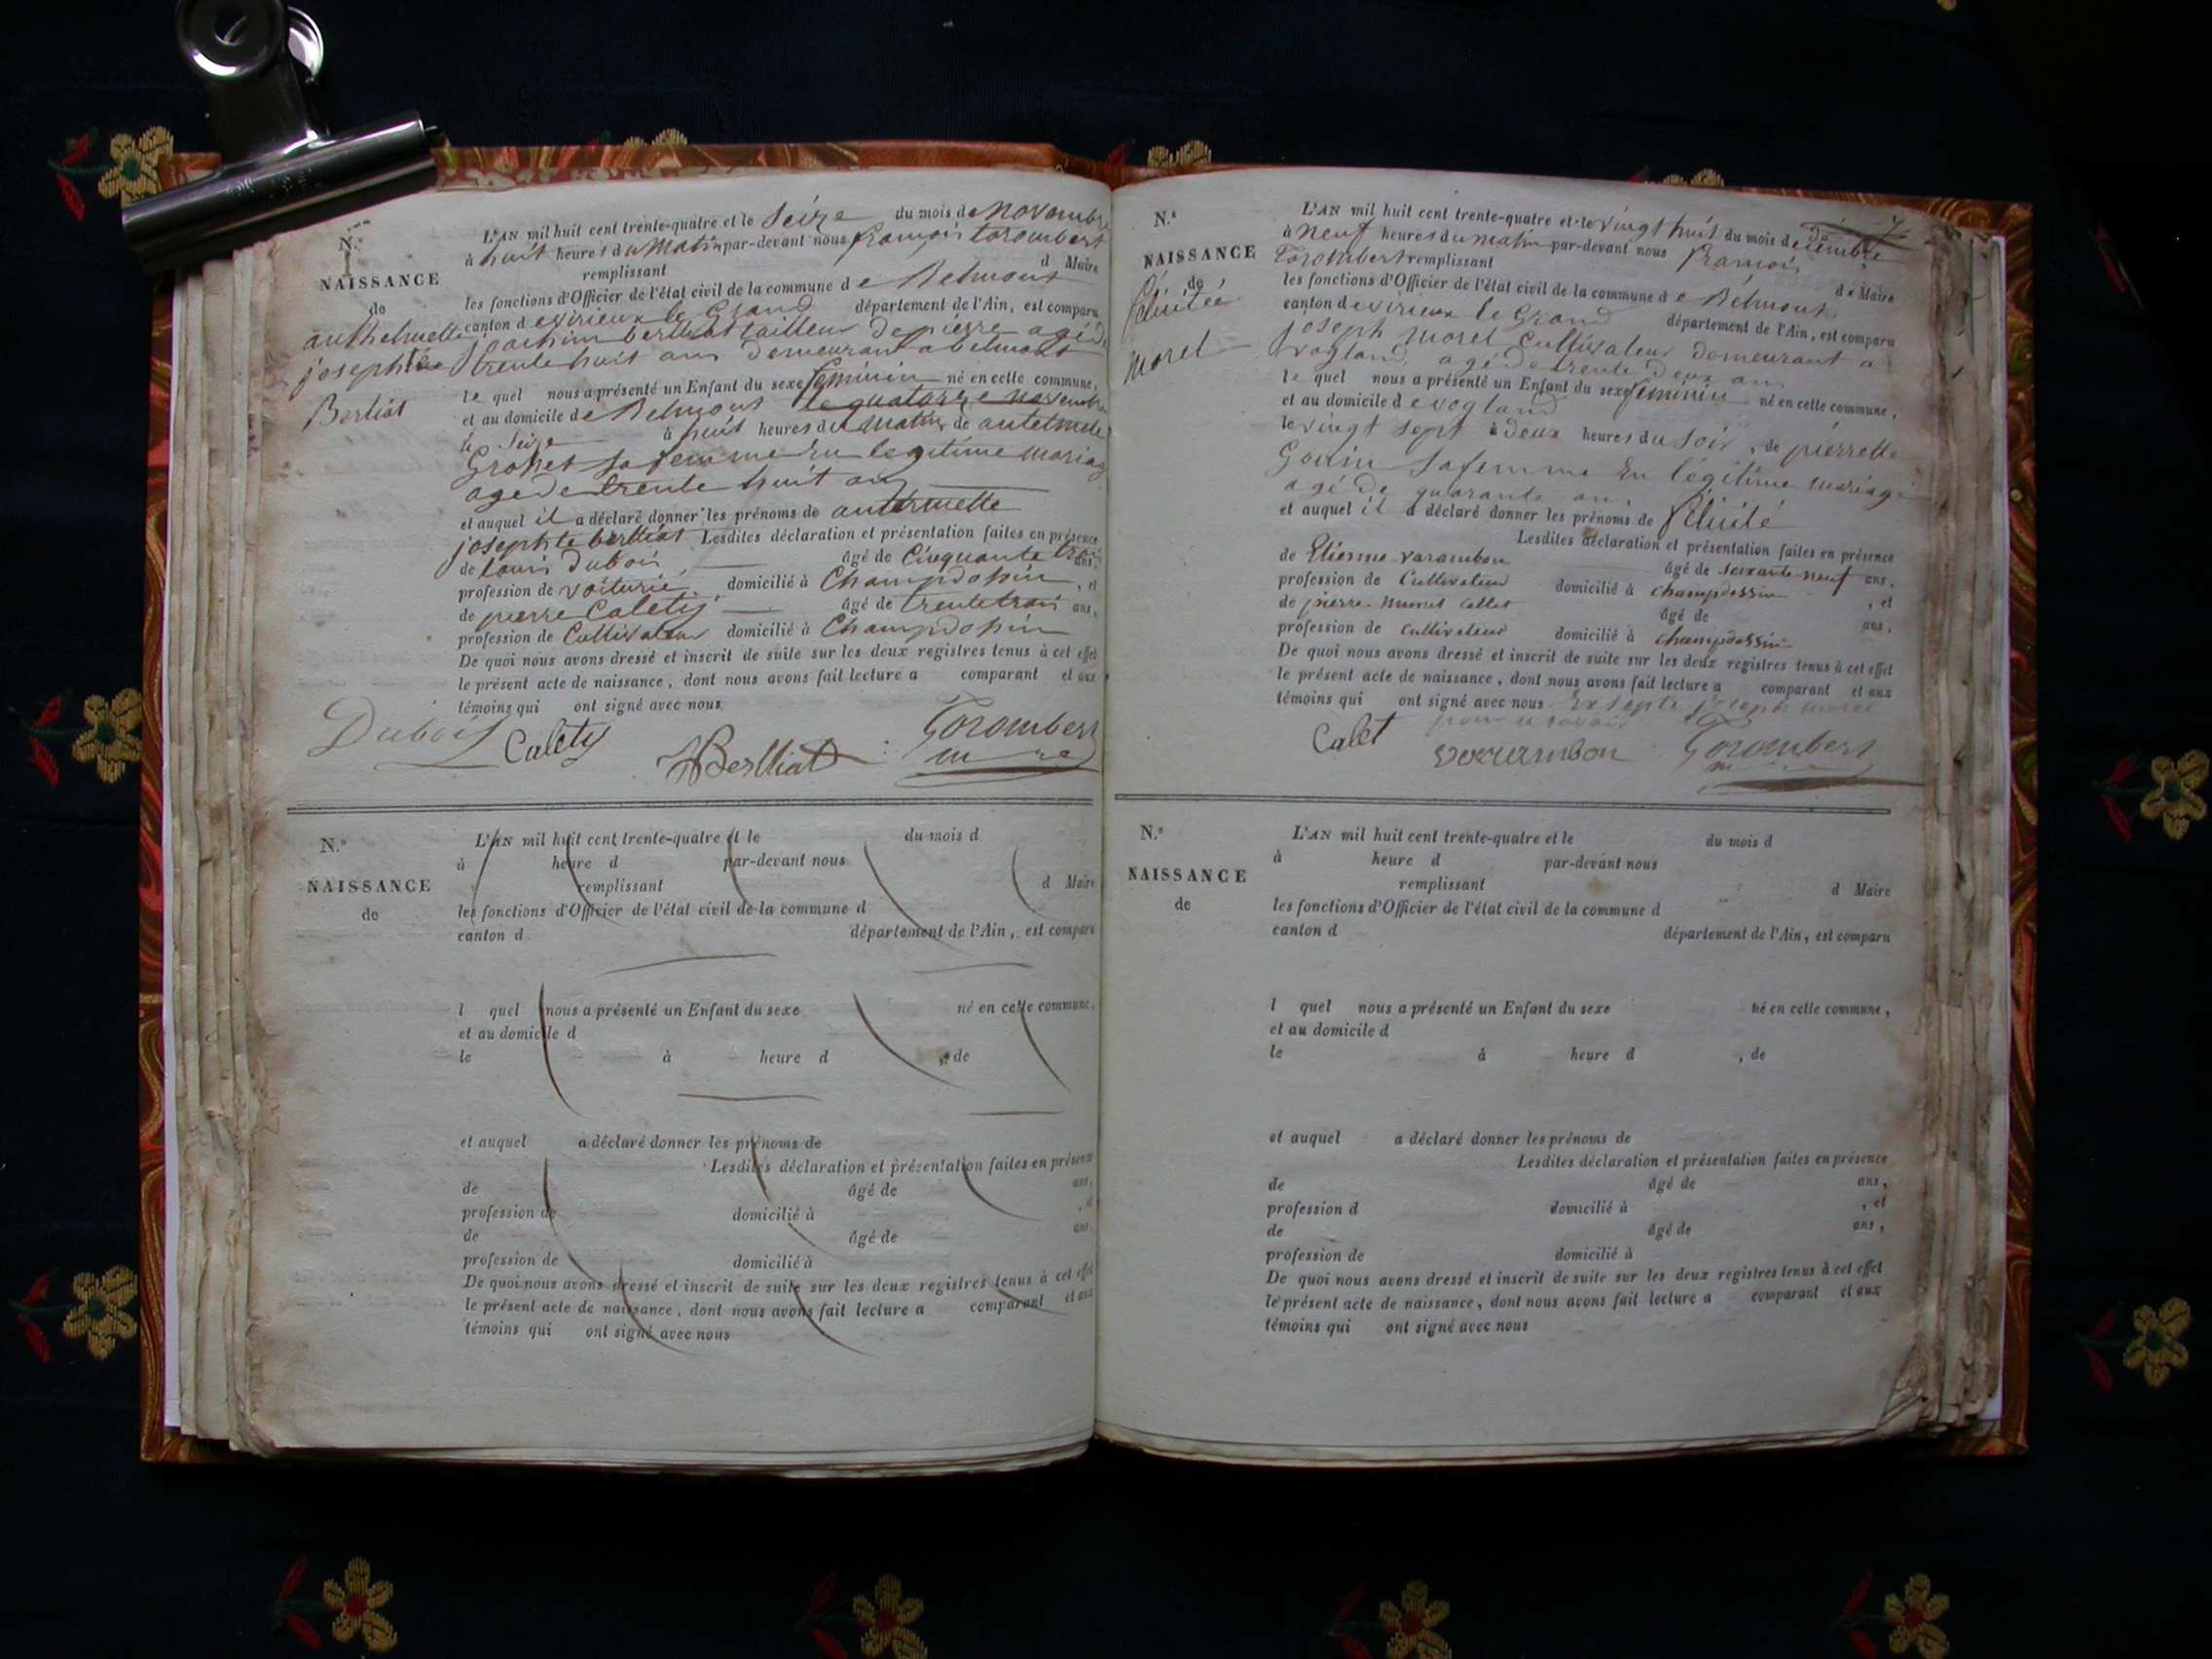 N.°
NAISSANCE
de
anthelmette
josephte
Berliat
L'AN mil huit cent trente-quatre et le Seize du mois de Novembre
à huit heures du Matin par-devant nous françois torombert
remplissant d Maire
les fonctions d'Officier de l'état civil de la commune de Belmont
canton de virieux le Grand département de l'Ain, est comparu
joachim berlliat tailleur de pierre agé de
trente huit ans demeurant a belmont
le quel nous a présenté un Enfant du sexe feminin né en celle commune,
et au domicile de Belmont le quatorze novembre
le Seize à huit heures du Matin, de antelmette
Grobet sa femme En legitime mariage
age de trente huit ans
et auquel il a déclaré donner les prénoms de antelmette
josephte berlliat Lesdites déclaration et présentation faites en présence
de louis Dubois, âgé de Cinquante trois ans,
profession de voiturié domicilié à Champdossin, et
de pierre Caletty âgé de trente trois ans,
profession de Cultivateur domicilié à Champdossin
De quoi nous avons dressé et inscrit de suite sur les deux registres tenus à cet effet
le présent acte de naissance, dont nous avons fait lecture a comparant et aux
témoins qui ont signé avec nous
Dubois Calety Berlliat Torombert
maire
N.°
NAISSANCE
de
L'AN mil huit cent trente-quatre et le du mois d
à heure d par-devant nous
remplissant d Maire
les fonctions d'Officier de l'état civil de la commune d
canton d département de l'Ain, est comparu
l quel nous a présenté un Enfant du sexe né en celle commune,
et au domicile d
le à heure d , de
et auquel a déclaré donner les prénoms de
Lesdites déclaration et présentation faites en présence
de âgé de ans,
profession de domicilié à , et
de âgé de ans,
profession de domicilié à
De quoi nous avons dressé et inscrit de suite sur les deux registres tenus à cet effet
le présent acte de naissance, dont nous avons fait lecture a comparant et aux
témoins qui ont signé avec nous
N.°
NAISSANCE
de
félicitée
Morel
L'AN mil huit cent trente-quatre et le vingt huit du mois de decembre
à Neuf heures du matin par-devant nous françois
Torombert remplissant de Maire
les fonctions d'Officier de l'état civil de la commune de Belmont
canton de virieux le Grand département de l'Ain, est comparu
joseph morel Cultivateur demeurant a
vogland, agé de trente deux ans
le quel nous a présenté un Enfant du sexe feminin né en celle commune,
et au domicile de vogland
le vingt sept à deux heures du Soir, de pierrette
Gouin Sa femme En légitime mariage
agé de quarante ans,
et auquel il a déclaré donner les prénoms de félicité
Lesdites déclaration et présentation faites en présence
de Etienne Varambon âgé de soixante-neuf ans,
profession de Cultivateur domicilié à champdossin, et
de pierre Mimet Callet âgé de ans,
profession de Cultivateur domicilié à champdossin
De quoi nous avons dressé et inscrit de suite sur les deux registres tenus à cet effet
le présent acte de naissance, dont nous avons fait lecture a comparant et aux
témoins qui ont signé avec nous Exsepte joseph morel
Calet varrambon Torombert
N.°
NAISSANCE
de
L'AN mil huit cent trente-quatre et le du mois d
à heure d par-devant nous
remplissant d Maire
les fonctions d'Officier de l'état civil de la commune d
canton d département de l'Ain, est comparu
l quel nous a présenté un Enfant du sexe né en celle commune,
et au domicile d
le à heure d , de
et auquel a déclaré donner les prénoms de
Lesdites déclaration et présentation faites en présence
de âgé de ans,
profession d domicilié à , et
de âgé de ans,
profession de domicilié à
De quoi nous avons dressé et inscrit de suite sur les deux registres tenus à cet effet
le présent acte de naissance, dont nous avons fait lecture a comparant et aux
témoins qui ont signé avec nous